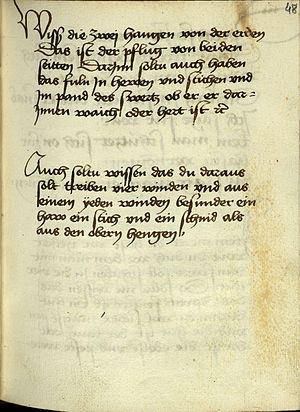 48
Wiss die zwei hangen von der erden
Das ist der pflug von beiden
seitten Darinn soltu auch haben
das fuln In herren und stichen vnd
Im pand des swertz ob er er dar-
Innen waich oder hert ist
Auch soltu wissen das du daraus
solt treiben vier winden vnd aus
einem yeden winden besunder ein
haw ein stich vnd ein schnid als
aus den obern hengen